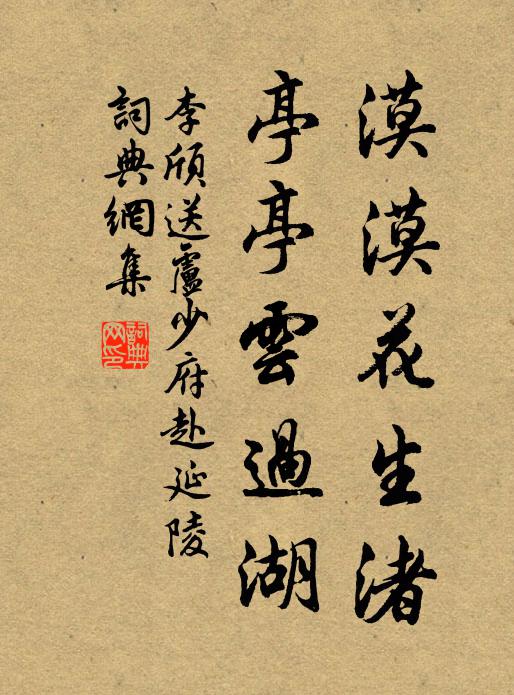 漠漠花生渚
亭亭雲過湖
李頎送盧少府赴延陵
詞典網集
詞典
网印